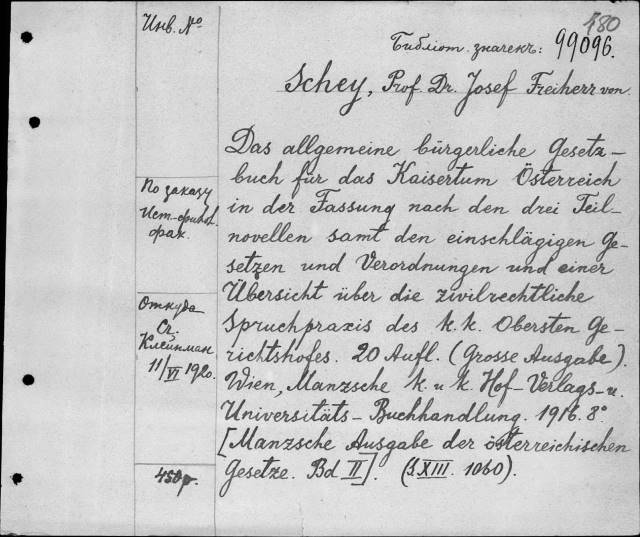 Инв. №
480
Библиот. значек: 99096.
Schey, Prof. Dr. Josef Freiherr von.
Das allgemeine bürgerliche Gesetz-
buch für das Kaisertum Österreich
in der Fassung nach den drei Teil-
novellen samt den einschlägigen Ge-
setzen und Verordnungen und einer
Übersicht über die zivilrechtliche
Spruchpraxis des k. k. Obersten Ge-
richtshofes. 20 Aufl. (Grosse Ausgabe).
Wien, Manzsche k. u. k. Hof-Verlags-u.
Universitäts-Buchhandlung. 1916. 8°
[Manzsche Ausgabe der österreichischen
Gesetze. Bd II]. (S. XIII. 1060).
По заказу
фак.
Откуда
Ст.
Клейнман
11/VI 1920.
450 р.